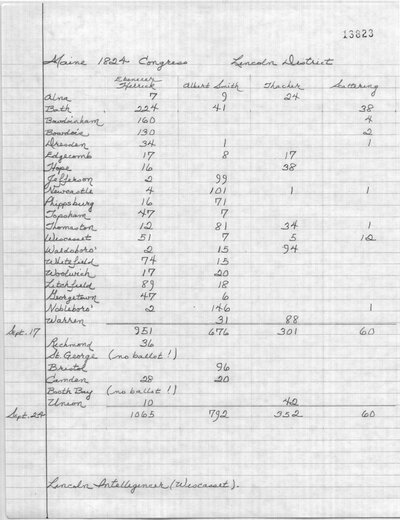 13823
Maine 1824 Congress Lincoln District
Ebenezer Herrick Albert Smith Thacher Scattering
Alna 7 9 24
Bath 224 41 38
Bowdoinham 160 4
Bowdoin 130 2
Dresden 34 1 1
Edgecomb 17 8 17
Hope 16 38
Jefferson 2 99
Newcastle 4 101 1 1
Phippsburg 16 71
Topsham 47 7
Thomaston 12 81 34 1
Wiscasset 51 7 5 12
Waldoboro' 2 15 94
Whitefield 74 15
Woolwich 17 20
Litchfield 89 18
Georgetown 47 6
Nobleboro' 2 146 1
Warren 31 88
Sept. 17 951 676 301 60
Richmond 36
St. George (no ballot!)
Bristol 96
Camden 28 20
Booth Bay (no ballot!)
Union 10 42
Sept. 24 1065 792 352 60
Lincoln Intelligencer (Wiscasset).